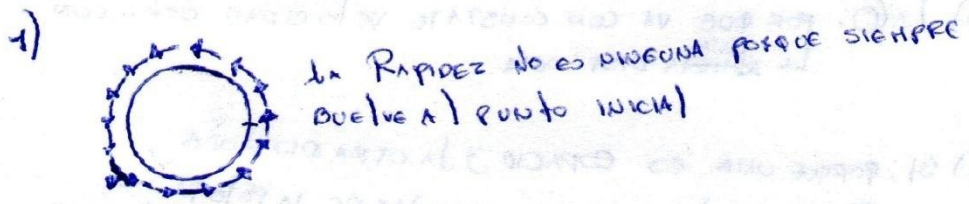 1)
LA RAPIDEZ NO ES NINGUNA PORQUE SIEMPRE
BUELVE Al PUNTO INICIAl